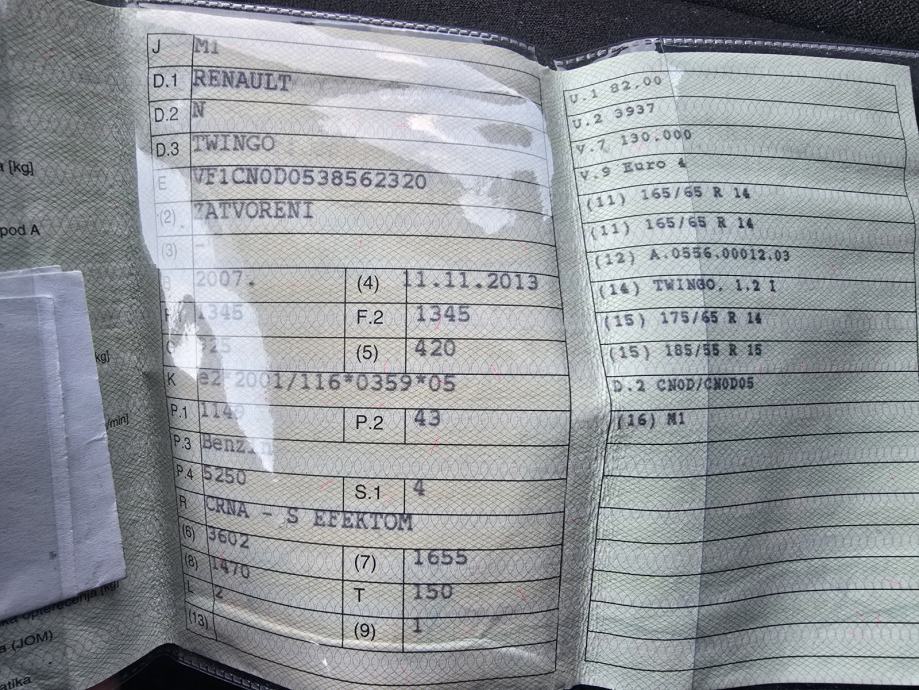 a [kg]
pod A
kg]
/min]
a (JOM)
J M1
D.1 RENAULT
D.2 N
D.3 TWINGO
E VF1CN0D0538562320
(2) ZATVORENI
(3) -
2007. (4) 11.11.2013
1345 F.2 1345
(5) 420
K e2*2001/116*0359*05
P.1 1149 P.2 43
P.3 Benzin
P.4 5250 S.1 4
R CRNA - S EFEKTOM
(6) 3602 (7) 1655
(8) 1470 T 150
L 2 (9) 1
(13)
U.1 82,00
U.2 3937
V.7 130.000
V.9 Euro 4
(11) 165/65 R 14
(11) 165/65 R 14
(12) A.0556.00012.03
(14) TWINGO, 1.2 I
(15) 175/65 R 14
(15) 185/55 R 15
D.2 CN0D/CN0D05
(16) M1